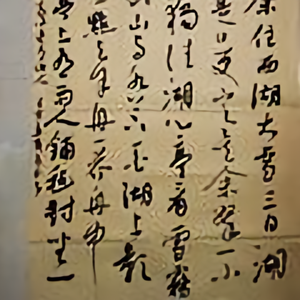 余住西湖大雪三日湖
是日更定矣余拏一小
獨往湖心亭看雪霧
山与水上下一白湖上影
一點与余舟一芥舟中
亭上有兩人鋪氈對坐一